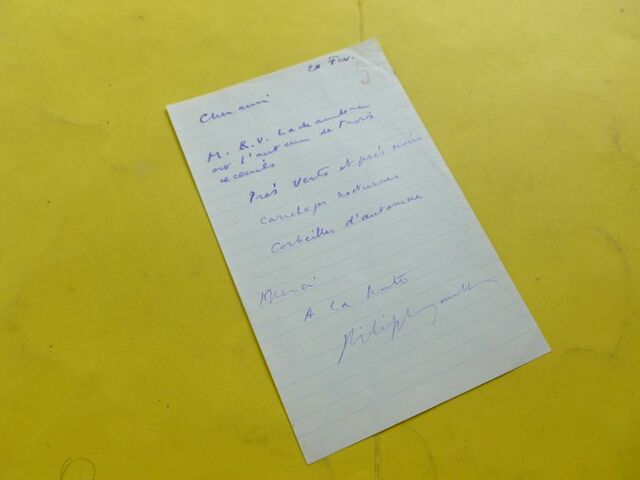 20 Fev.
Cher ami
M. R.V. Lachambeau
est l'auteur de trois
recueils
Prés verts et prés noirs
Carrelages nocturnes
Corbeilles d'automne
Merci
A la hate